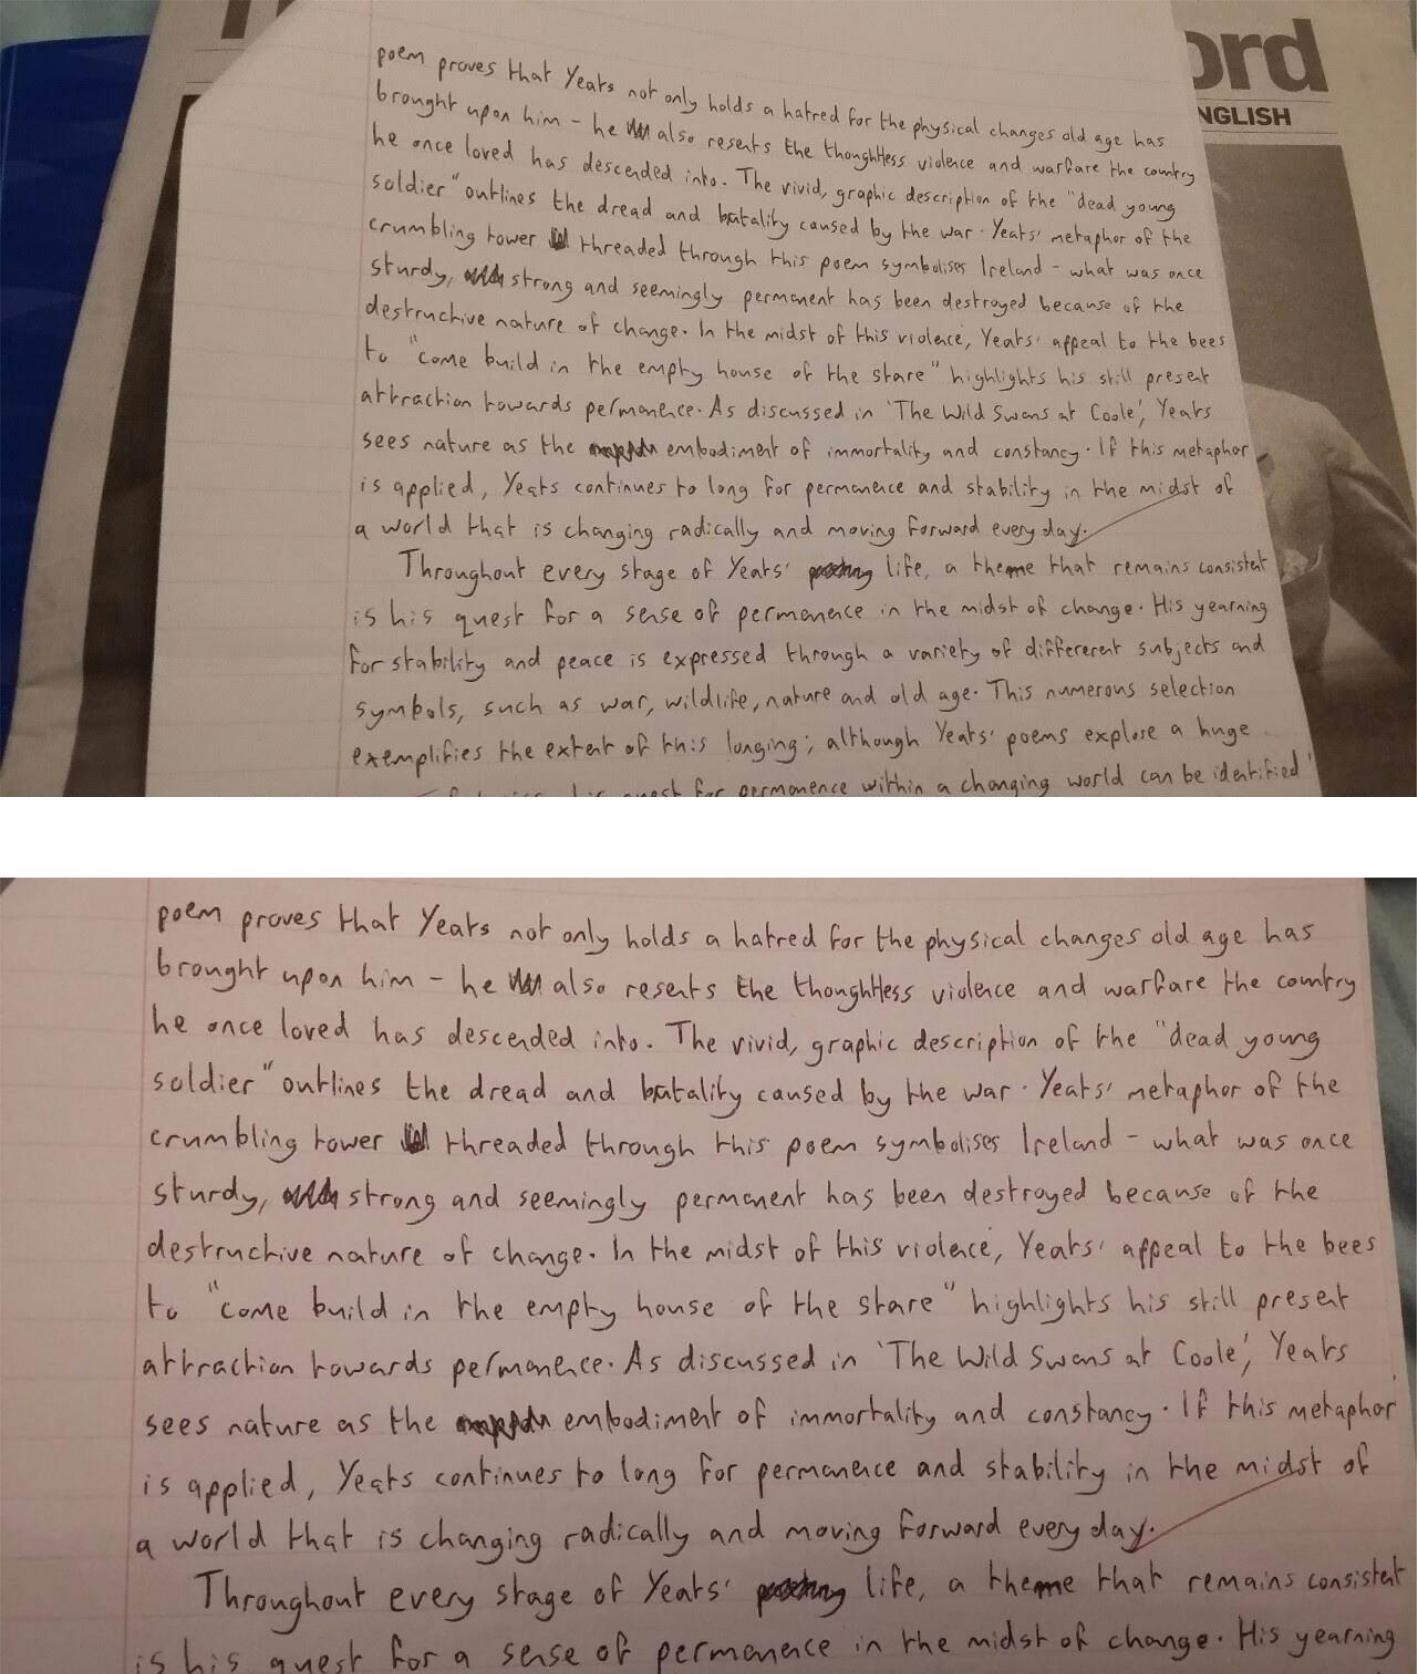 ord
NGLISH
poem proves that Yeats not only holds a hatred for the physical changes old age has
brought upon him – he also resents the thoughtless violence and warfare the country
he once loved has descended into. The vivid, graphic description of the "dead young
soldier" outlines the dread and brutality caused by the war. Yeats' metaphor of the
crumbling tower threaded through this poem symbolises Ireland – what was once
sturdy, strong and seemingly permanent has been destroyed because of the
destructive nature of change. In the midst of this violence, Yeats' appeal to the bees
to "come build in the empty house of the stare" highlights his still present
attraction towards permanence. As discussed in 'The Wild Swans at Coole', Yeats
sees nature as the embodiment of immortality and constancy. If this metaphor
is applied, Yeats continues to long for permanence and stability in the midst of
a world that is changing radically and moving forward every day.
Throughout every stage of Yeats' life, a theme that remains consistent
is his quest for a sense of permanence in the midst of change. His yearning
for stability and peace is expressed through a variety of differerent subjects and
symbols, such as war, wildlife, nature and old age. This numerous selection
exemplifies the extent of this longing; although Yeats' poems explore a huge
quest for permanence within a changing world can be identified
poem proves that Yeats not only holds a hatred for the physical changes old age has
brought upon him – he also resents the thoughtless violence and warfare the country
he once loved has descended into. The vivid, graphic description of the "dead young
soldier" outlines the dread and brutality caused by the war. Yeats' metaphor of the
crumbling tower threaded through this poem symbolises Ireland – what was once
sturdy, strong and seemingly permanent has been destroyed because of the
destructive nature of change. In the midst of this violence, Yeats' appeal to the bees
to "come build in the empty house of the stare" highlights his still present
attraction towards permanence. As discussed in 'The Wild Swans at Coole', Yeats
sees nature as the embodiment of immortality and constancy. If this metaphor
is applied, Yeats continues to long for permanence and stability in the midst of
a world that is changing radically and moving forward every day.
Throughout every stage of Yeats' life, a theme that remains consistent
is his quest for a sense of permanence in the midst of change. His yearning